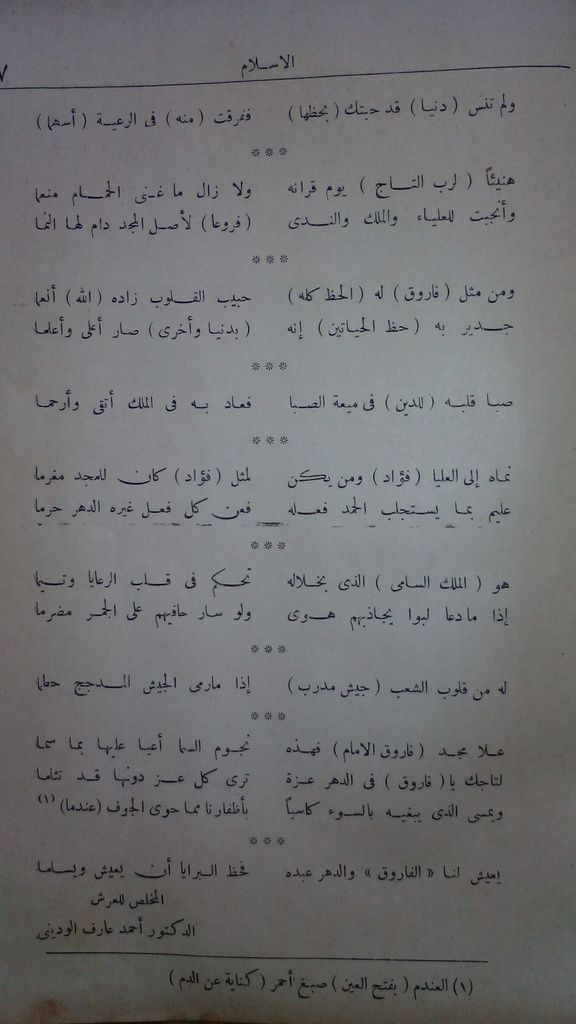 الاسلام
٧
ولم تنس ( دنيا ) قد حبتك ( بحظها ) ففرقت ( منه ) فى الرعية ( أسهما )
***
هنيئاً ( لرب التاج ) يوم قرانه ولا زال ما غنى الحمام منعما
وأنجبت للعلياء والملك والندى ( فروعا ) لأصل المجد دام لها النما
***
ومن مثل ( فاروق ) له ( الحظ كله ) حبيب القلوب زاده ( الله ) أنعما
جدير به ( حظ الحياتين ) إنه ( بدنيا وأخرى ) صار أعلى وأعلما
***
صبا قلبه ( للدين ) فى ميعة الصبا فعاد به فى الملك أتقى وأرحما
***
نماه إلى العليا ( فؤاد ) ومن يكن لمثل ( فؤاد ) كان للمجد مغرما
عليم بما يستجلب الحمد فعله فعن كل فعل غيره الدهر حرما
***
هو ( الملك السامى ) الذى بخلاله تحكم فى قلب الرعايا وتيما
إذا ما دعا لبوا يجاذبهم هوى ولو سار حافيهم على الجمر مضرما
***
له من قلوب الشعب ( جيش مدرب ) إذا مارمى الجيش المدجج حطما
***
علا مجد ( فاروق الامام ) فهذه نجوم السما أعيا عليها بما سما
لتاجك يا ( فاروق ) فى الدهر عزة ترى كل عز دونها قد تثلما
ويمسى الذى يبغيه بالسوء كاسياً بأظفارنا مما حوى الجوف ( عندما ) (١)
***
يعيش لنا « الفاروق » والدهر عبده فحظ البرايا أن يعيش ويسلما
المخلص للعرش
الدكتور أحمد عارف الودينى
(١) العندم ( بفتح العين ) صبغ أحمر ( كناية عن الدم )